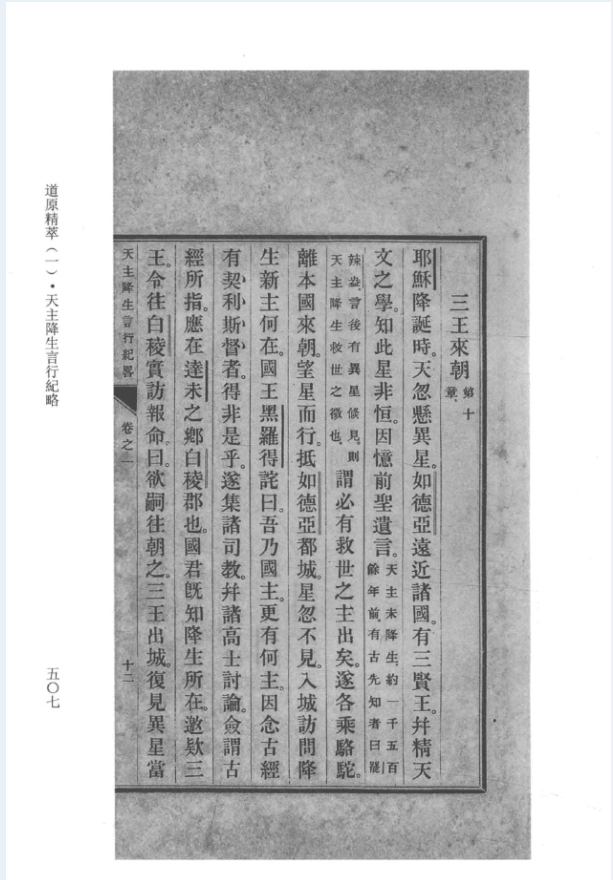 三王來朝 第十章、
耶穌降誕時。天忽懸異星。如德亞遠近諸國。有三賢王。幷精天
文之學。知此星非恒。因憶前聖遺言。天主未降生、約一千五百餘年前、有古先知者曰罷
辣盎、言後有異星倐見、則天主降生救世之徵也、謂必有救世之主出矣。遂各乘駱駝。
離本國來朝。望星而行。抵如德亞都城。星忽不見。入城訪問降
生新主何在。國王黑羅得詫曰。吾乃國主。更有何主。因念古經
有契利斯督者。得非是乎。遂集諸司教。幷諸高士討論。僉謂古
經所指。應在達未之鄉白稜郡也。國君旣知降生所在。邀欵三
王。令往白稜實訪報命。曰。欲嗣往朝之。三王出城。復見異星當
天主降生言行紀畧 卷之一 十二
道原精萃（一）·天主降生言行紀略 五〇七